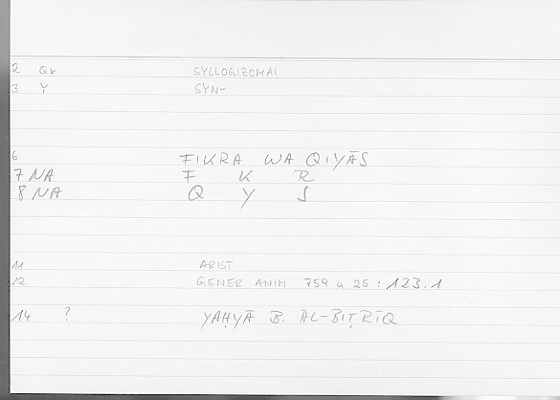 2 Qv SYLLOGIZOMAI
3 Y SYN-
6 FIKRA WA QIYĀS
7 NA F K R
8 NA Q Y S
11 ARIST
12 GENER ANIM 759 a 25 : 123.1
14 ? YAḤYĀ B. AL-BIṬRĪQ